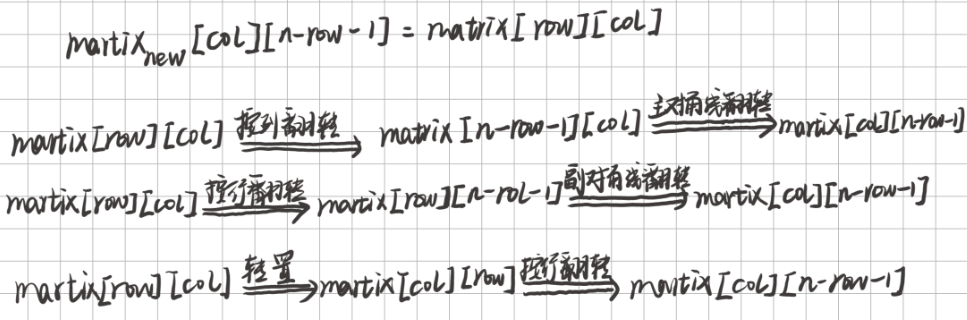 martix_new[col][n-row-1] = matrix[row][col]
martix[row][col] 按列翻转 matrix[n-row-1][col] 主对角线翻转 martix[col][n-row-1]
martix[row][col] 按行翻转 martix[row][n-rol-1] 副对角线翻转 martix[col][n-row-1]
martix[row][col] 转置 martix[col][row] 按行翻转 martix[col][n-row-1]